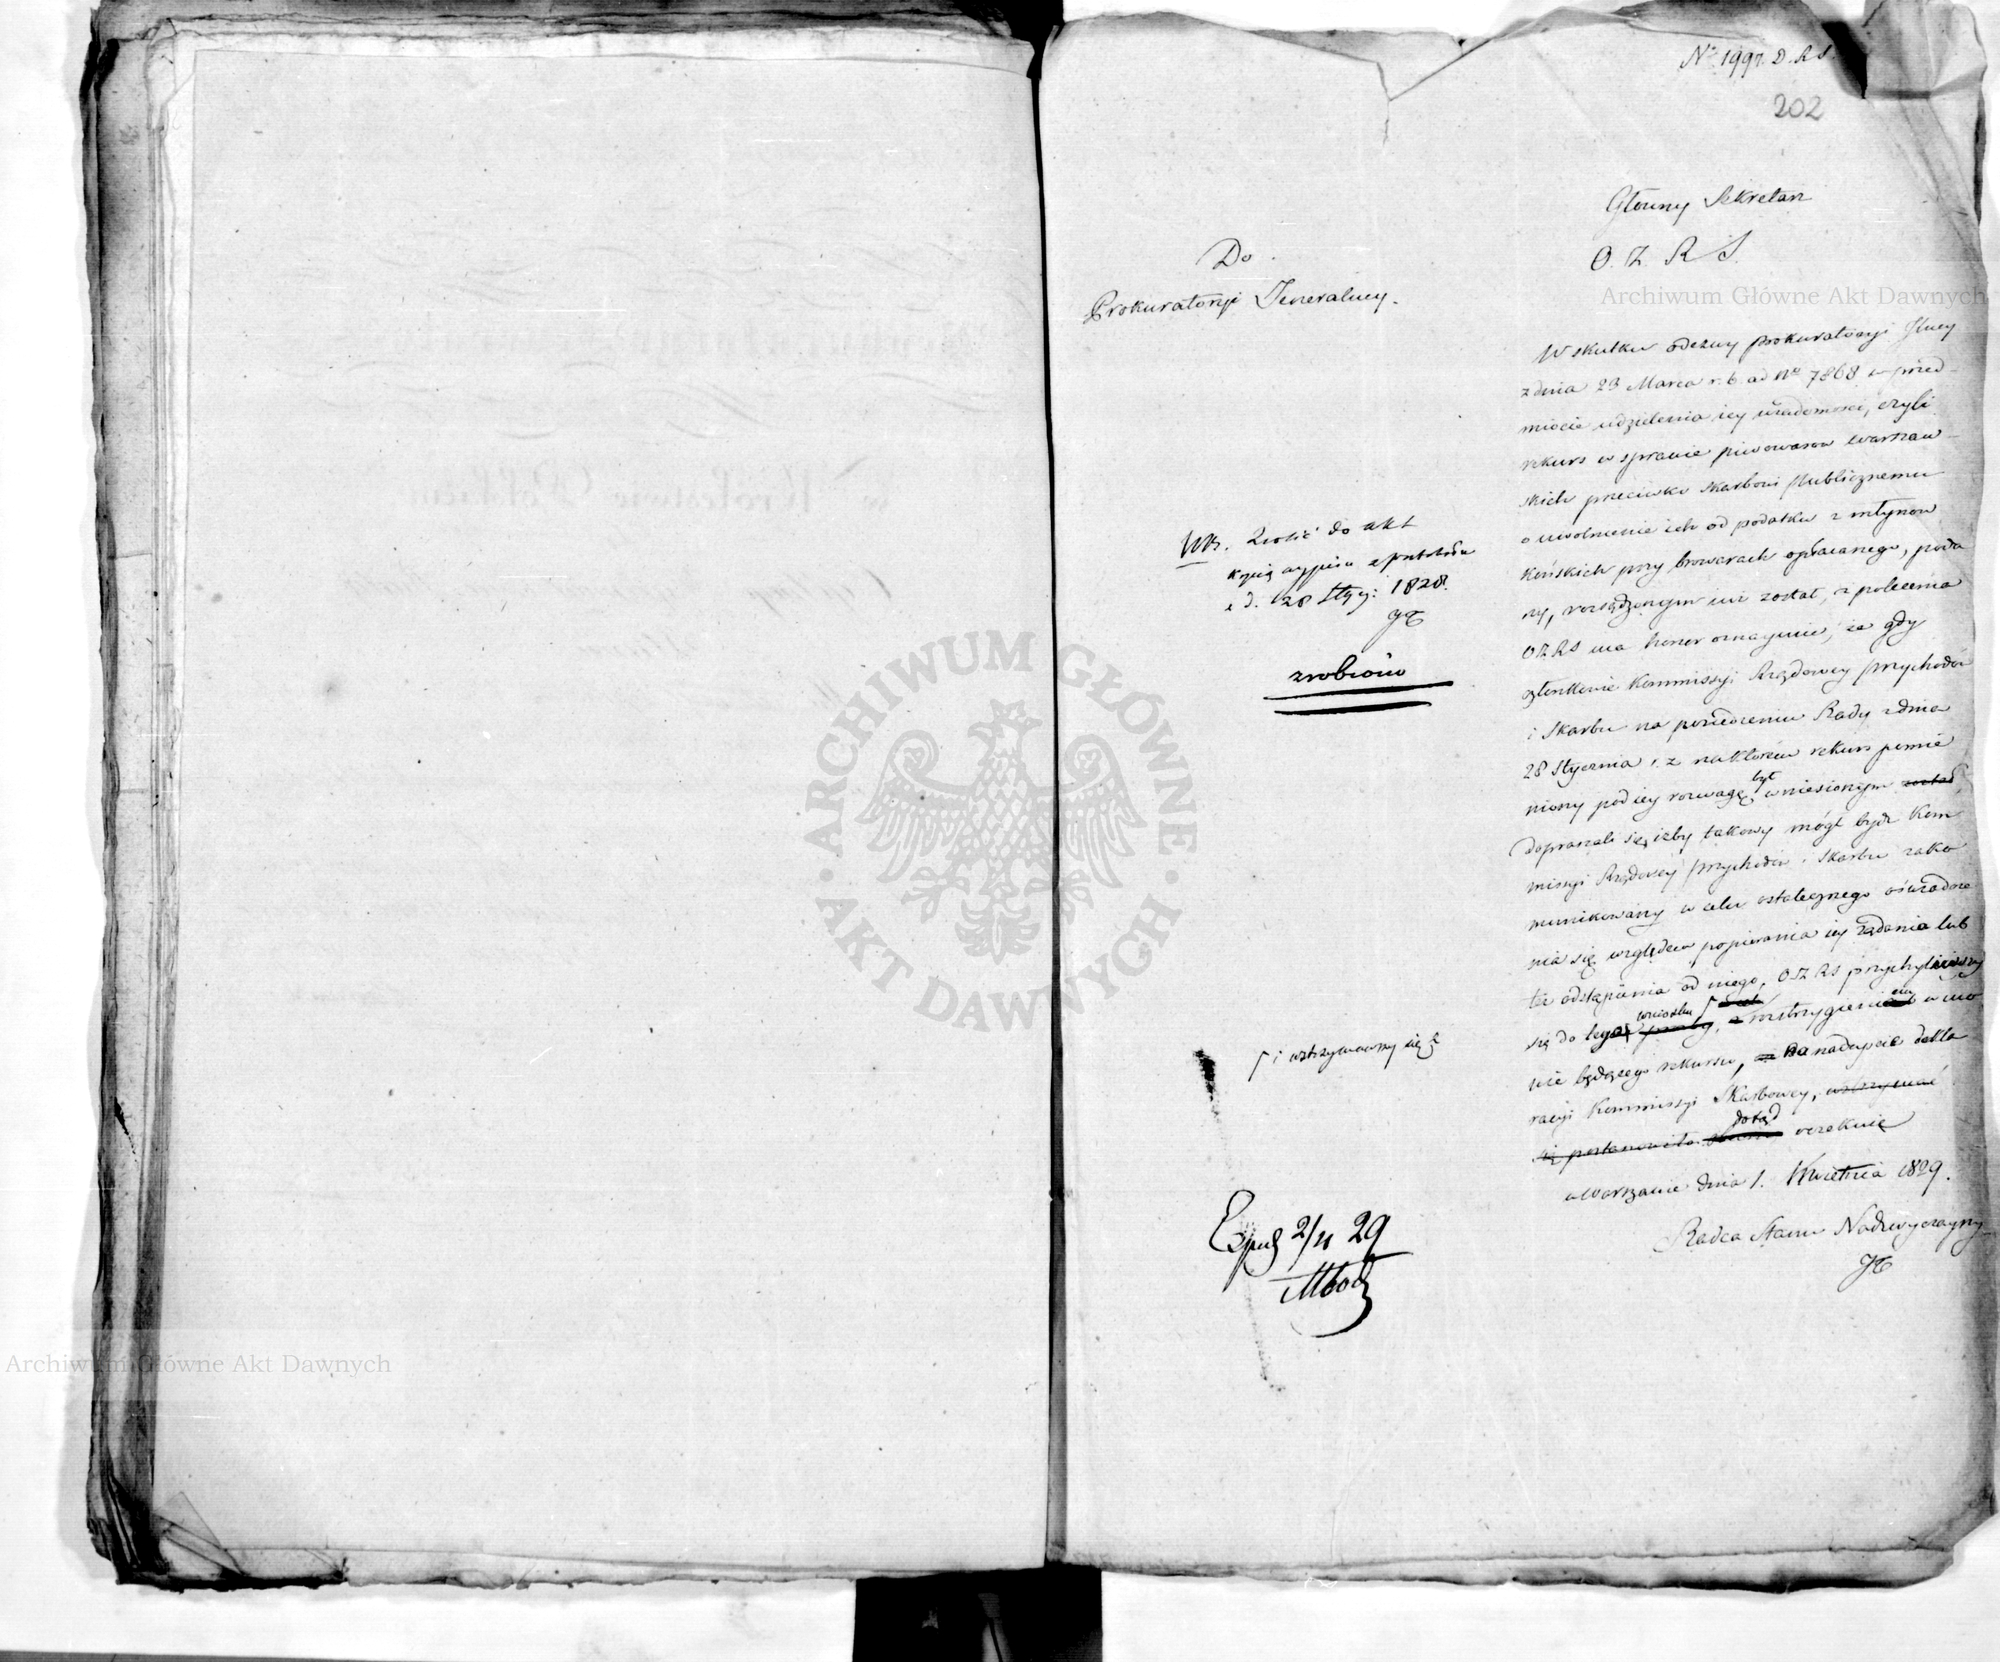 № 1997. D. R S.
202
Główny Sekretarz
O. Z. R S.
Do
Prokuratoryi Jeneralney.
W skutku odezwy prokuratoryi Jlney
z dnia 23 Marca r. b. ad Nº 7868 w przed-
miocie udzielenia iey wiadomości, czyli
rekurs w sprawie piwowarów warszaw-
skich przeciwko Skarbowi Publicznemu
o uwolnienie ich od podatku z młynów
końskich przy browarach opłacanego, poda
ny, rozsądzonym iuż został, z polecenia
OZRS ma honor oznaymić, że gdy
członkowie Kommissyi Rządowey Przychodów
i Skarbu na posiedzeniu Rady z dnia
28 Stycznia r. z. na którem rekurs pomie
niony pod iey rozwagę był wniesionym został,
dopraszali się, iżby takowy mógł bydź Kom
missyi Rządowey Przychodów i Skarbu zako
munikowany w celu ostatecznego oświadcze
nia się względem popierania iey żądania lub
też odstąpienia od niego, OZRS przychyliwszy
się do tego wniosku rozstrzygnienia w mo
wie będącego rekursu, na nadejście dekla
racyi Kommissyi Skarbowey, wstrzymać
się postanowiła dotąd oczekuie
w Warszawie dnia 1. Kwietnia 1829.
Radca Stanu Nadzwyczayny
NB. Złożić do akt
kopią wypisu z protokołu
z d. 28 Stycz: 1828.
zrobiono
i wstrzymawszy się z
Exped 2/4 29
Archiwum Główne Akt Dawnych
Archiwum Główne Akt Dawnych
ARCHIWUM GŁÓWNE
· AKT DAWNYCH ·